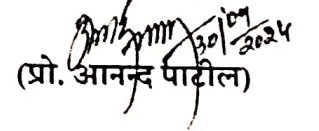 30/09/2024
(प्रो. आनन्द पाटील)